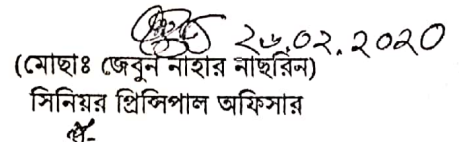 ২৬.০২.২০২০
(মোছাঃ জেবুন নাহার নাছরিন)
সিনিয়র প্রিন্সিপাল অফিসার